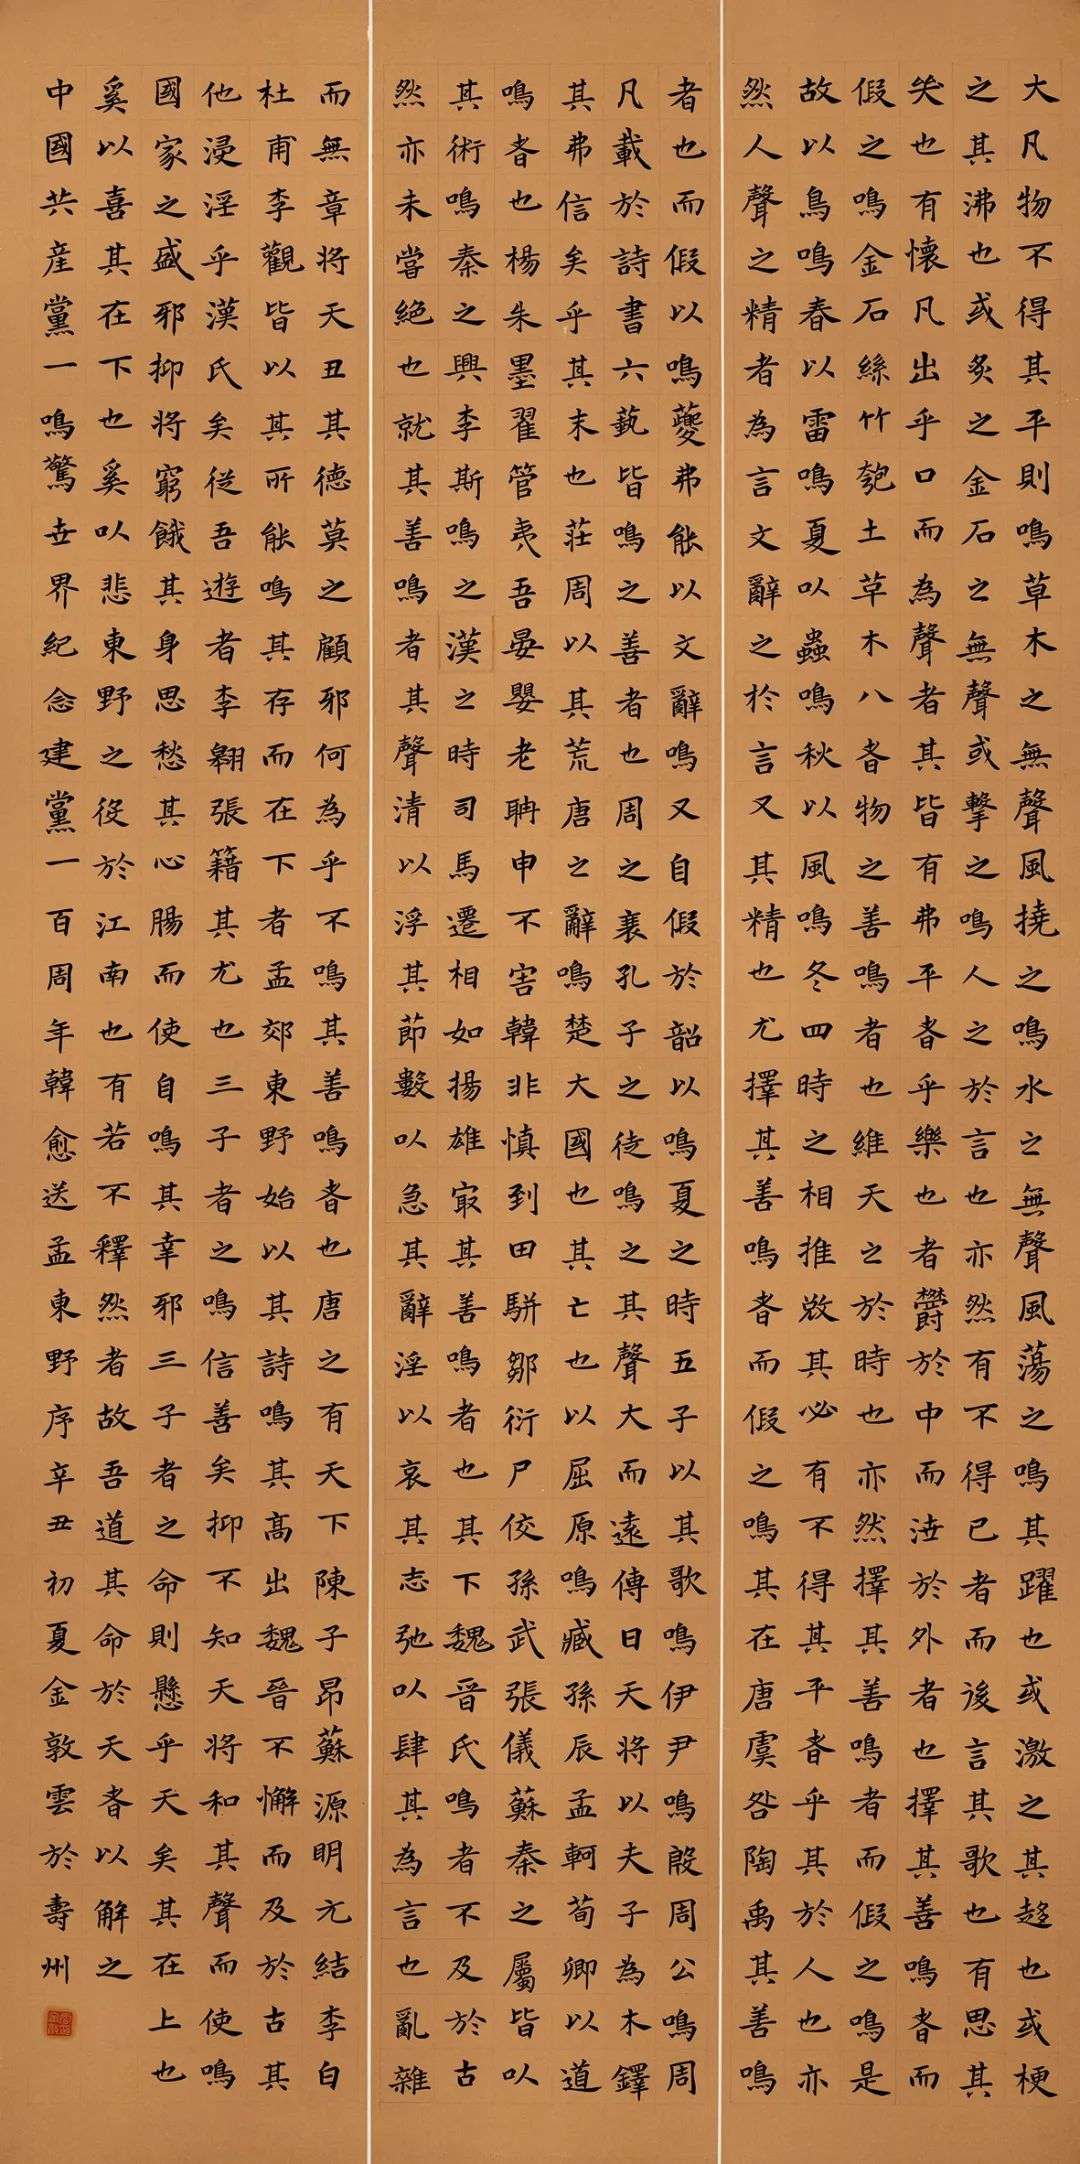 大凡物不得其平則鳴草木之無聲風撓之鳴水之無聲風蕩之鳴其躍也或激之其趍也或梗
之其沸也或炙之金石之無聲或擊之鳴人之於言也亦然有不得已者而後言其歌也有思其
哭也有懷凡出乎口而為聲者其皆有弗平者乎樂也者鬱於中而泄於外者也擇其善鳴者而
假之鳴金石絲竹匏土草木八者物之善鳴者也維天之於時也亦然擇其善鳴者而假之鳴是
故以鳥鳴春以雷鳴夏以蟲鳴秋以風鳴冬四時之相推敓其必有不得其平者乎其於人也亦
然人聲之精者為言文辭之於言又其精也尤擇其善鳴者而假之鳴其在唐虞咎陶禹其善鳴
者也而假以鳴夔弗能以文辭鳴又自假於韶以鳴夏之時五子以其歌鳴伊尹鳴殷周公鳴周
凡載於詩書六藝皆鳴之善者也周之衰孔子之徒鳴之其聲大而遠傳曰天將以夫子為木鐸
其弗信矣乎其末也莊周以其荒唐之辭鳴楚大國也其亡也以屈原鳴臧孫辰孟軻荀卿以道
鳴者也楊朱墨翟管夷吾晏嬰老聃申不害韓非慎到田駢鄒衍尸佼孫武張儀蘇秦之屬皆以
其術鳴秦之興李斯鳴之漢之時司馬遷相如揚雄最其善鳴者也其下魏晉氏鳴者不及於古
然亦未嘗絕也就其善鳴者其聲清以浮其節數以急其辭淫以哀其志弛以肆其為言也亂雜
而無章將天丑其德莫之顧邪何為乎不鳴其善鳴者也唐之有天下陳子昂蘇源明元結李白
杜甫李觀皆以其所能鳴其存而在下者孟郊東野始以其詩鳴其高出魏晉不懈而及於古其
他浸淫乎漢氏矣從吾遊者李翱張籍其尤也三子者之鳴信善矣抑不知天將和其聲而使鳴
國家之盛邪抑將窮餓其身思愁其心腸而使自鳴其幸邪三子者之命則懸乎天矣其在上也
奚以喜其在下也奚以悲東野之役於江南也有若不釋然者故吾道其命於天者以解之
中國共産黨一鳴驚世界紀念建黨一百周年韓愈送孟東野序辛丑初夏金敦雲於壽州